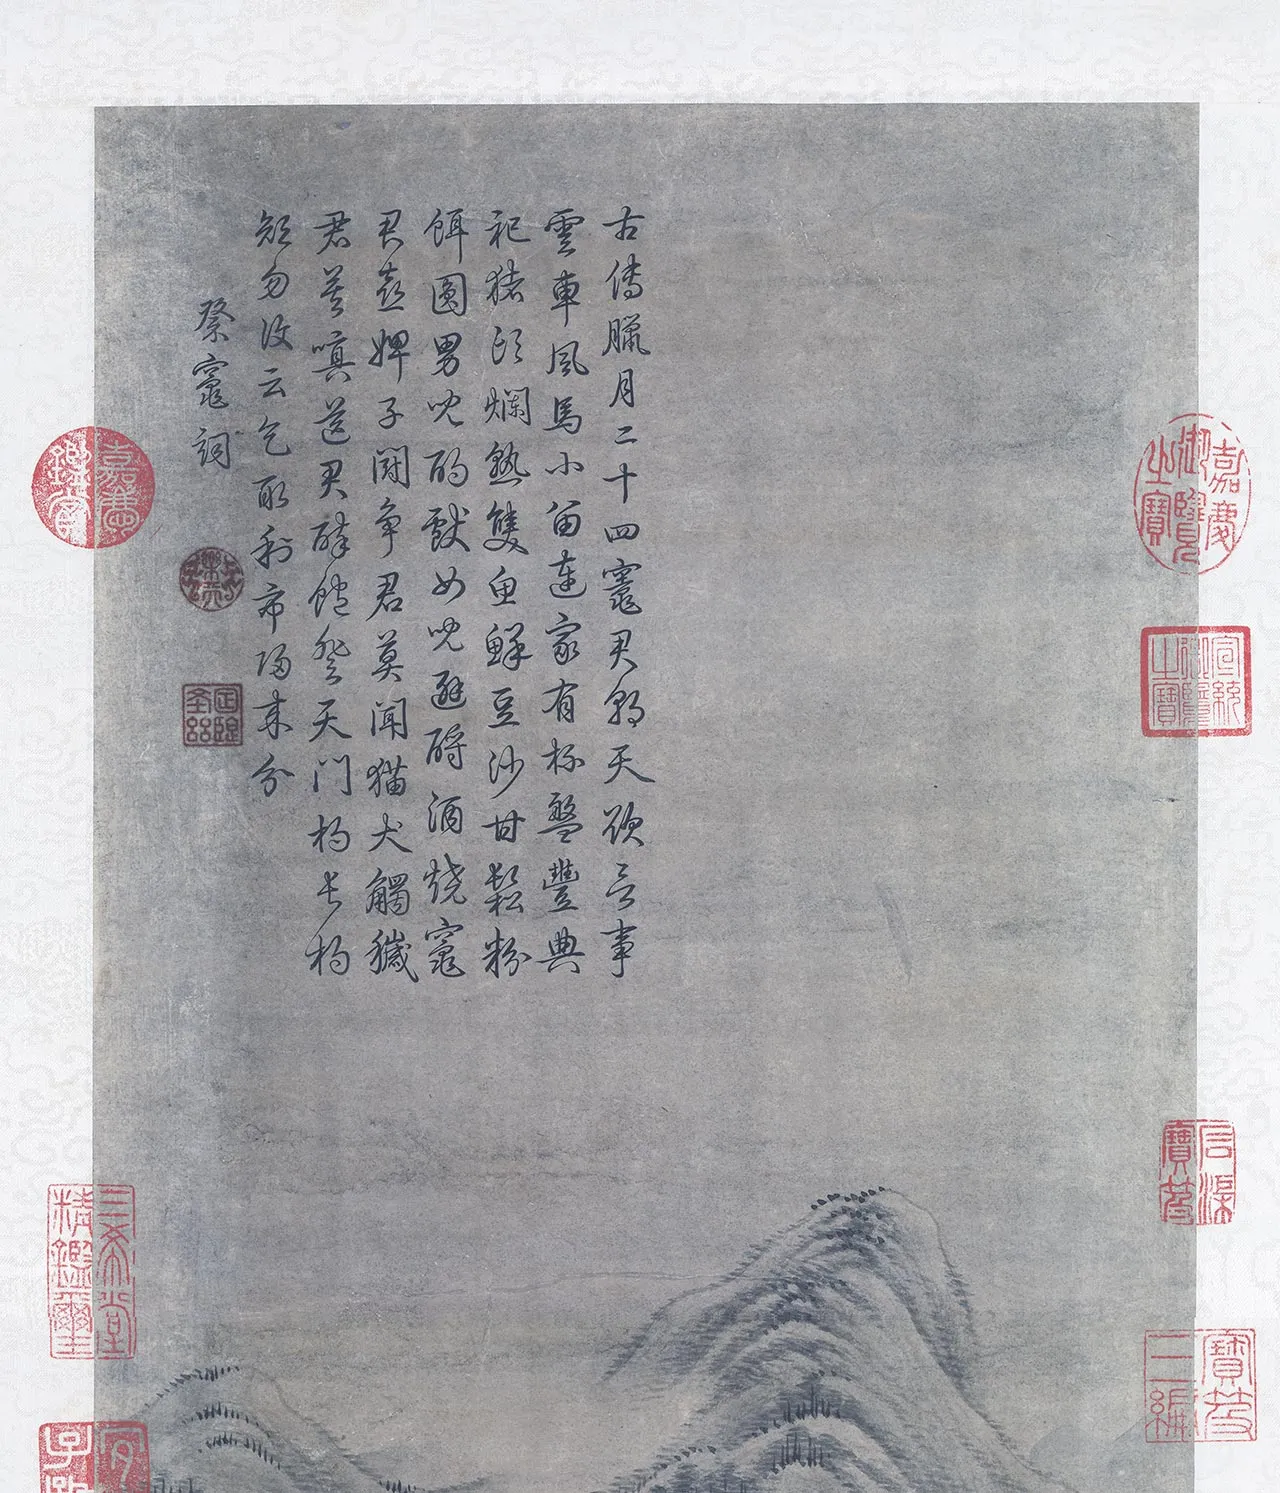 古傳臘月二十四竈君朝天欲言事
雲車風馬小留連家有杯盤豐典
祀猪頭爛熟雙魚鮮豆沙甘鬆粉
餌圓男兒酌獻女兒避酹酒燒竈
君喜婢子鬪争君莫聞猫犬觸穢
君莫嗔送君醉飽登天門杓長杓
短勿復云乞取利市歸來分
祭竈詞
嘉慶御覽之寶
宣統御覽之寶
石渠寶笈
寶笈三編
嘉慶鑑賞
三希堂精鑑璽
宜子